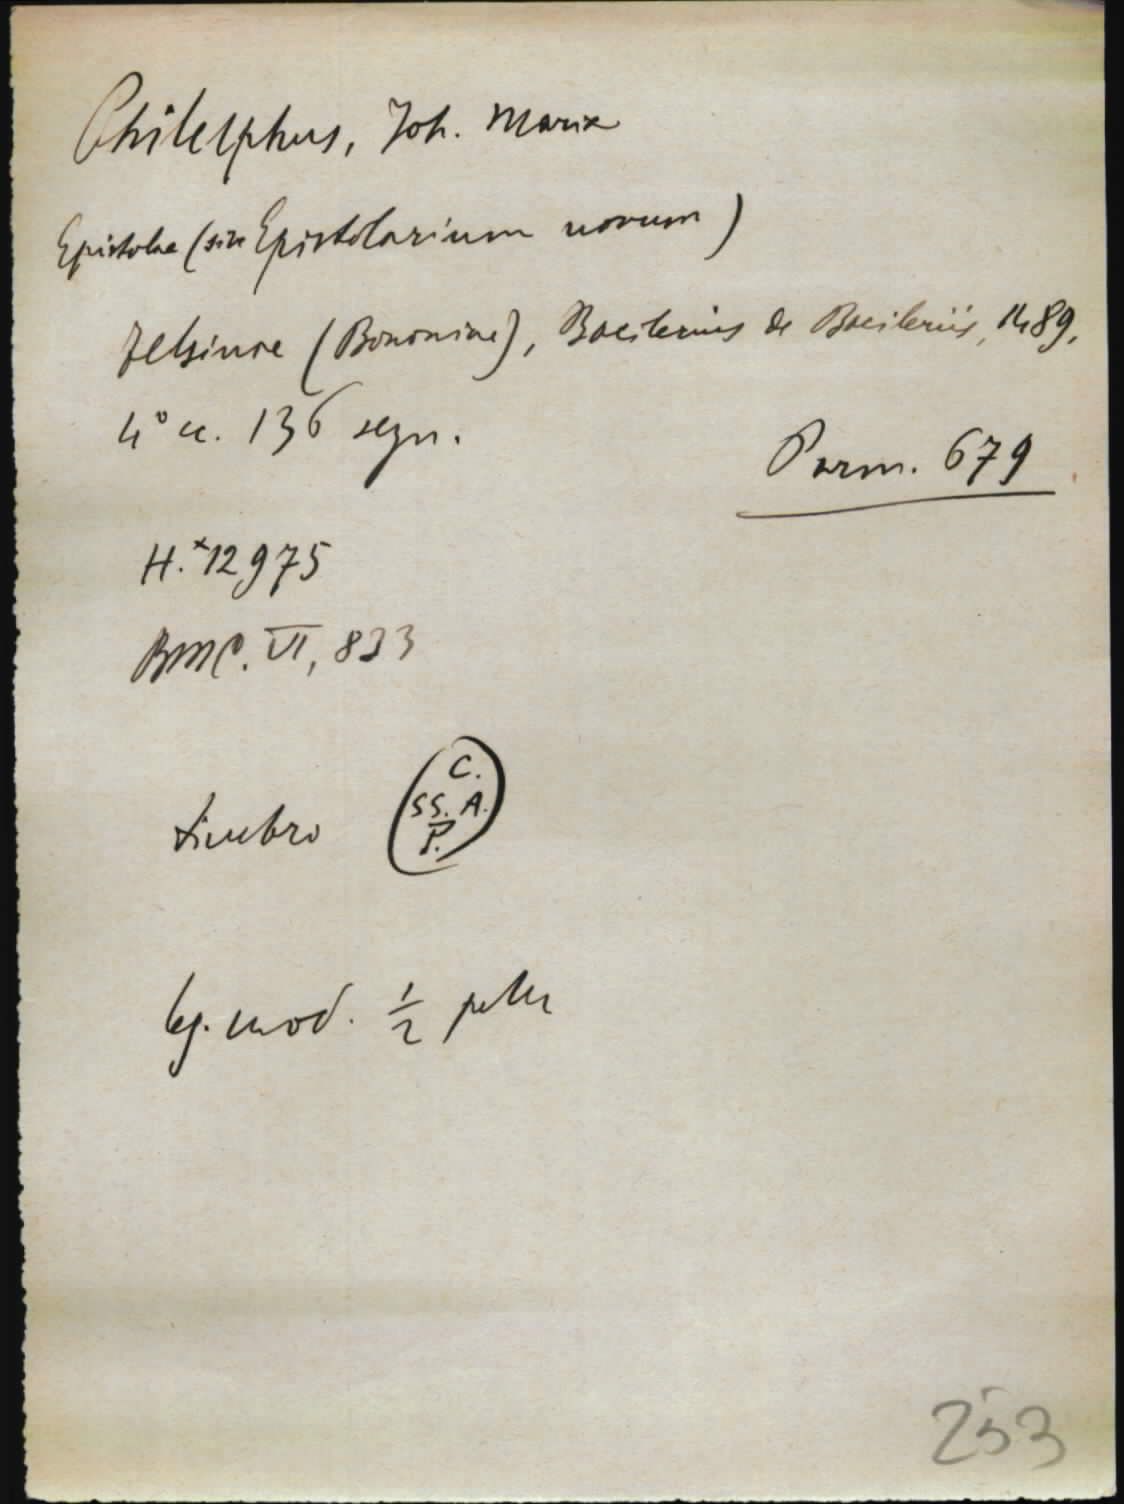 Philelphus, Joh. Maria
Epistolae (sive Epistolarium novum)
Felsinae (Bononiae), Bacilerius de Bacileriis, 1489,
4° cc. 136 segn.
Parm. 679
H.*12975
BMC. VI, 833
timbro
C.
SS. A.
P.
leg. mod. ½ pelle
253